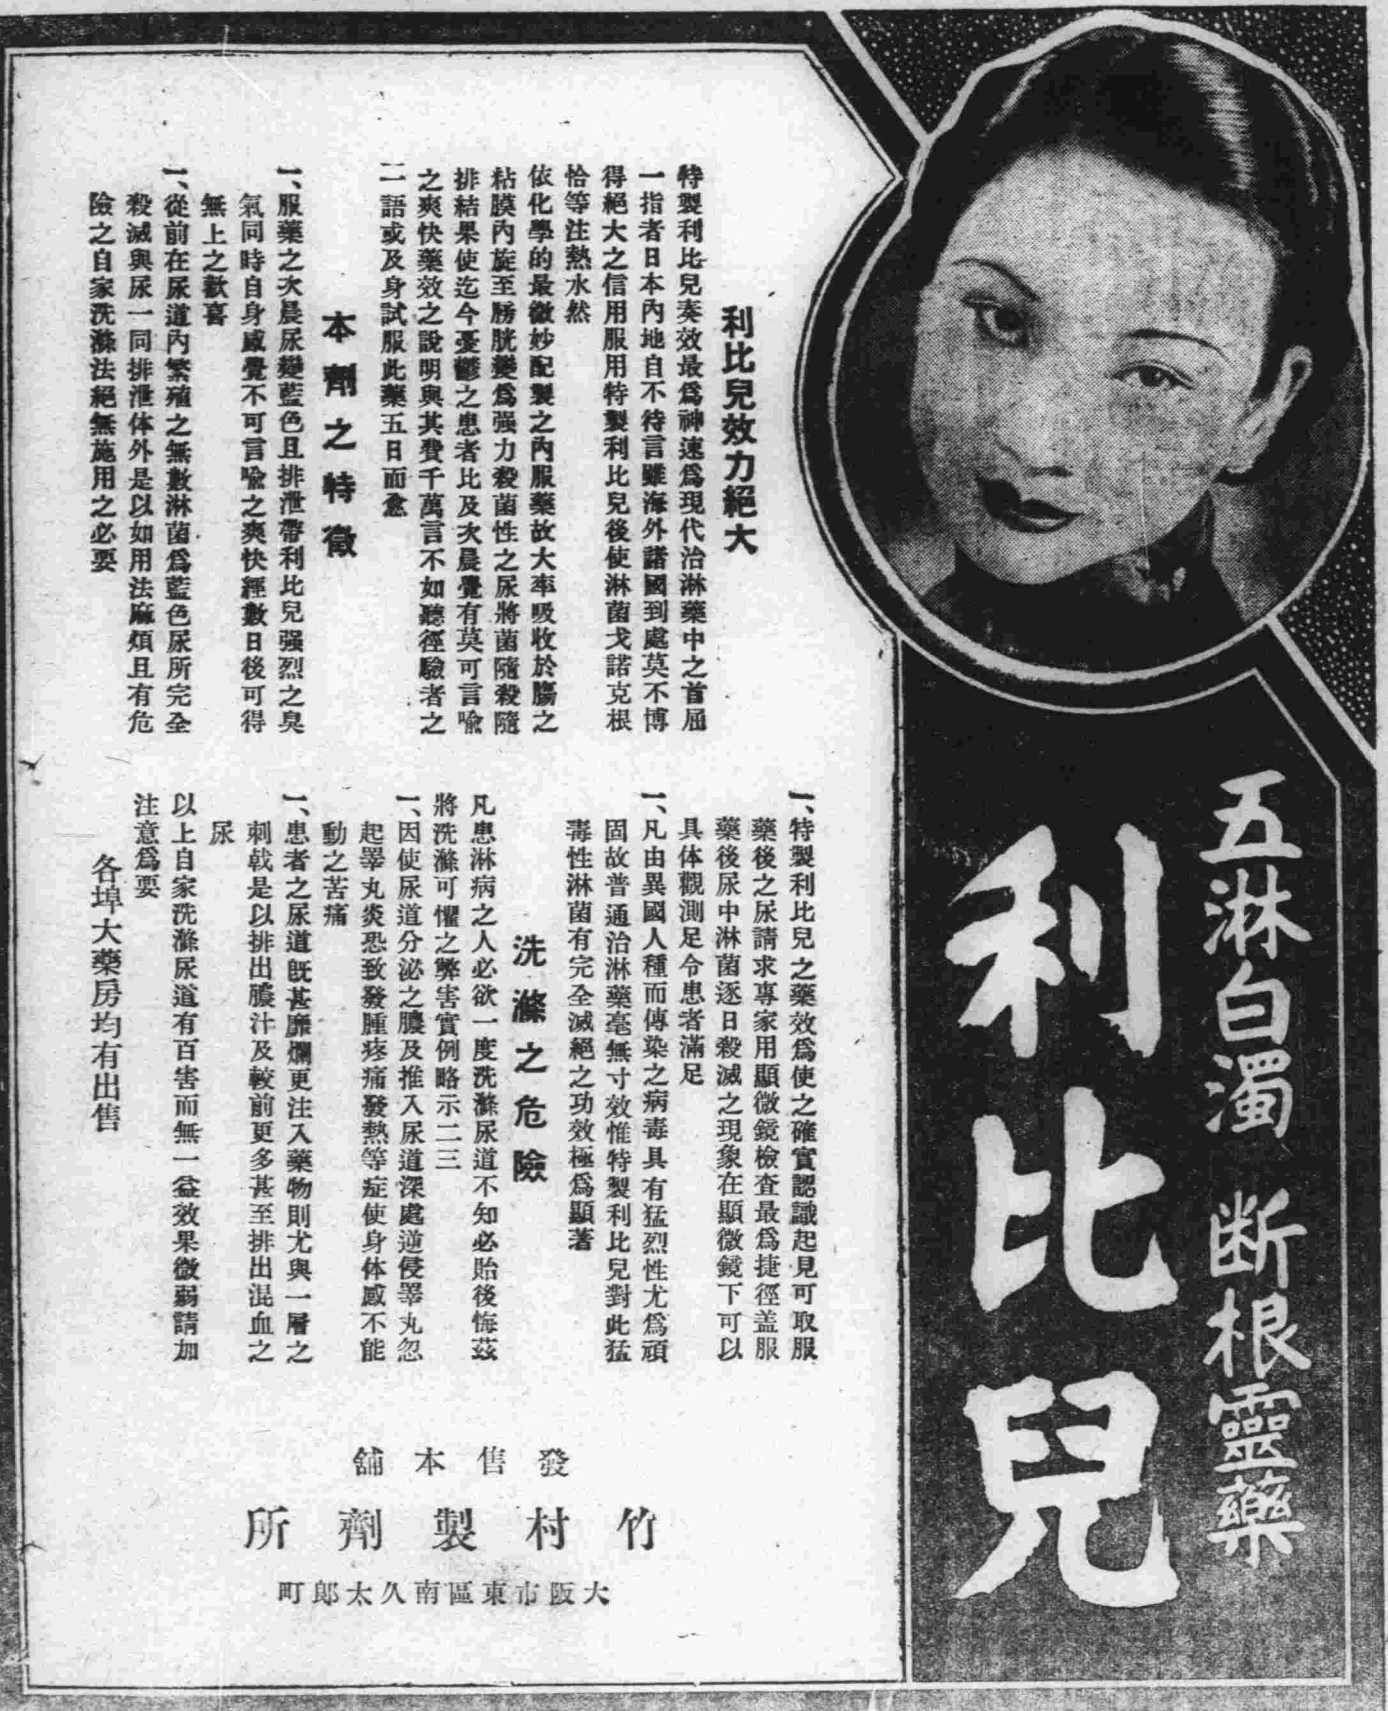 五淋白濁　断根靈藥
利比兒
利比兒效力絕大
特製利比兒奏效最爲神速爲現代治淋藥中之首屈
一指者日本內地自不待言雖海外諸國到處莫不博
得絕大之信用服用特製利比兒後使淋菌戈諾克根
恰等注熱水然
依化學的最微妙配製之內服藥故大率吸收於膓之
粘膜內旋至膀胱變爲强力殺菌性之尿將菌隨殺隨
排結果使迄今憂鬱之患者比及次晨覺有莫可言喩
之爽快藥效之說明與其費千萬言不如聽徑驗者之
一語或及身試服此藥五日而愈
本劑之特徵
一、服藥之次晨尿變藍色且排泄帶利比兒强烈之臭
氣同時自身感覺不可言喩之爽快經數日後可得
無上之歡喜
一、從前在尿道內繁殖之無數淋菌爲藍色尿所完全
殺滅與尿一同排泄体外是以如用法麻煩且有危
險之自家洗滌法絕無施用之必要
一、特製利比兒之藥效爲使之確實認識起見可取服
藥後之尿請求專家用顯微鏡檢查最爲捷徑盖服
藥後尿中淋菌逐日殺滅之現象在顯微鏡下可以
具体觀測足令患者滿足
一、凡由異國人種而傳染之病毒具有猛烈性尤爲頑
固故普通治淋藥毫無寸效惟特製利比兒對此猛
毒性淋菌有完全滅絕之功效極爲顯著
洗滌之危險
凡患淋病之人必欲一度洗滌尿道不知必貽後悔茲
將洗滌可懼之弊害實例略示二三
一、因使尿道分泌之膿及推入尿道深處逆侵睪丸忽
起睪丸炎恐致發腫疼痛發熱等症使身体感不能
動之苦痛
一、患者之尿道旣甚靡爛更注入藥物則尤與一層之
刺戟是以排出膿汁及較前更多甚至排出混血之
尿
以上自家洗滌尿道有百害而無一益效果微弱請加
注意爲要
各埠大藥房均有出售
發售本舖
竹村製劑所
大阪市東區南久太郎町